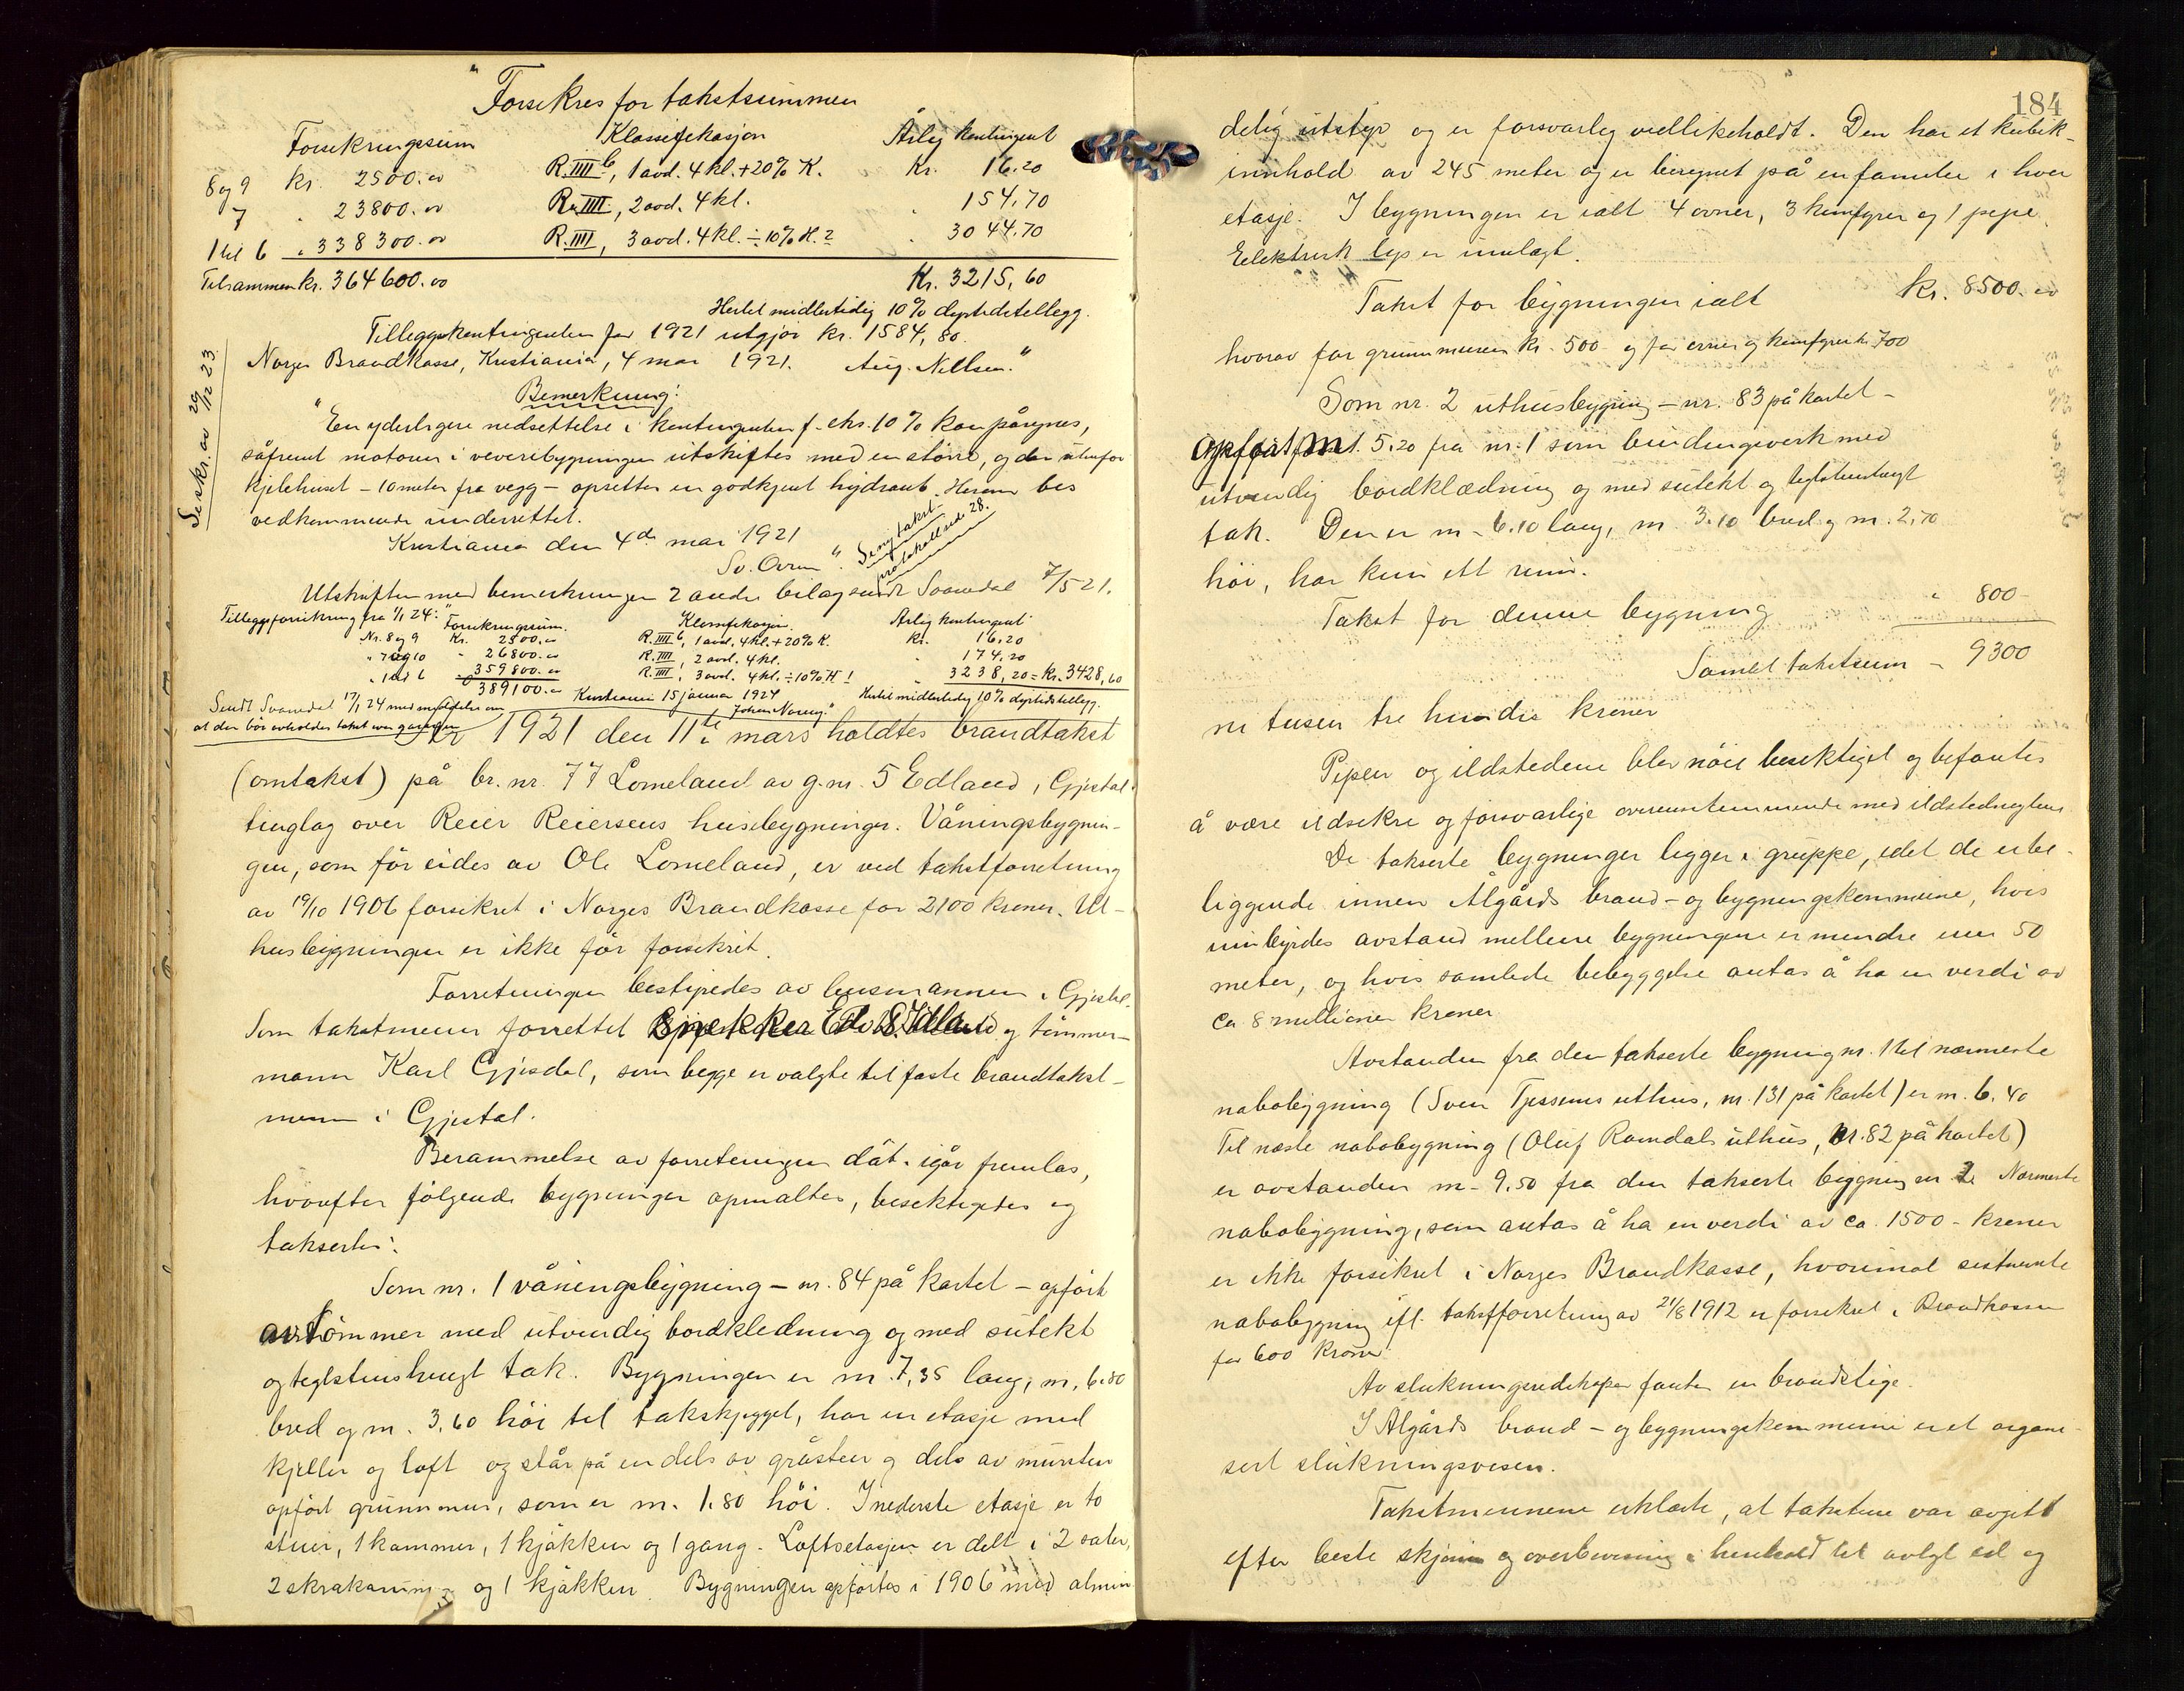 "Forsikres for takstsummen
Forsikringssum Klassifikasjon Årlig kontingent
8 og 9 kr. 2500.00 R.IIII b, 1 avd. 4 kl. + 20% K. Kr. 16.20
7 " 23800.00 R.IIII, 2 avd. 4 kl. " 154,70
1 til 6 " 338300.00 R.IIII, 3 avd. 4 kl. ÷ 10% H.2 " 3044.70
Tilsammen kr. 364600.00 Kr. 3215,60
Hertil midlertidig 10% dyrtidstillegg.
Tilleggskontingenten for 1921 utgjör kr. 1584,80.
Norges Brandkasse, Kristiania, 4 mai 1921. Aug. Nilsen."
Se skr. av 29/12 23
Bemerkning:
"En yderligere nedsettelse i kontingenten f. eks. 10% kan påregnes,
såfremt motoren i veveribygningen utskiftes med en större, og der utenfor
kjelehuset – 10 meter fra vegg – opsettes en godkjent hydrant. Herom bes
vedkommende underrettet.
Kristiania den 4de mai 1921
Sv. Oven". Se ny takst
protokollside 28.
Utskriften med bemerkninger 2 andre bilag sendt Svandal 7/5 21.
Tilleggsforsikring fra 1/1 24:" Forsikringssum. Klassifikasjon. Årlig kontingent
Nr. 8 og 9 Kr. 2500.00 R.IIII b, 1 avd. 4 kl. + 20% K. Kr. 16.20
" 7 og 10 " 26800.00 R.IIII, 2 avd. 4 kl. " 174,20
" 1 til 6 " 359800.00 R.IIII, 3 avd. 4 kl. ÷ 10% H! " 3238,20 = Kr. 3428,60
389100.00 Kristiania 15 januar 1924 Hertil midlertidig 10% dyrtidstillegg.
Sendt Svandal 17/1 24 med meddelelse om Johan Noreng."
at der bör avholdes takst over garasjen
År 1921 den 11te mars holdtes brandtakst
(omtakst) på br. nr. 77 Lomeland av g. nr. 5 Edland, Gjestal
tinglag over Reier Reiersens husebygninger. Våningsbygnin-
gen, som för eides av Ole Lomeland, er ved takstforretning
av 19/10 1906 forsikret i Norges Brandkasse for 2100 kroner. Ut-
husbygningen er ikke för forsikret.
Forretningen bestyredes av lensmannen i Gjestal.
Som takstmenn forrettet Snekker Edv. S. Idland og tömmer-
mann Karl Gjesdal, som begge er valgte til faste brandtakst-
menn i Gjestal.
Berammelse av forretningen dat. igår fremlas,
hvorefter fölgende bygninger opmaltes, besiktigetes og
takserte:
Som nr. 1 våningsbygning – nr. 84 på kartet – opfört
av tömmer med utvendig bordkledning og med sutekt
og teglstenshengt tak. Bygningen er m. 7,35 lang, m. 6.80
bred og m. 3.60 höi til takskjegget, har en etasje med
kjeller og loft og står på en dels av gråsten og dels av mursten
opfört grunnmur, som er m. 1.80 höi. I nederste etasje er to
stuer, 1 kammer, 1 kjökken og 1 gang. Loftsetasjen er delt i 2 saler,
2 skrakammer og 1 kjökken. Bygningen opförtes i 1906 med almin-
184
delig utstyr og er forsvarlig vedlikeholdt. Den har et kubik-
innhold av 245 meter og er beregnet på en familie i hver
etasje. I bygningen er ialt 4 ovner, 3 komfyrer og 1 pipe.
Elektrisk lys er innlagt.
Takst for bygningen ialt kr. 8500.00
hvorav for grunnmuren kr. 500 og for ovner og komfyrer kr. 700
Som nr. 2 uthusbygning – nr. 83 på kartet –
opfört m. 5.20 fra nr. 1 som bindingsverk med
utvendig bordklædning og med sutekt og teglstenhengt
tak. Den er m. 6.10 lang, m. 3.10 bred og m. 2,70
höi, har kun ett rum.
Takst for denne bygning " 800 –
Samlet takstsum – 9300
ni tusen tre hundre kroner
Pipen og ildstedene blev nöie besiktiget og befantes
å være ildsikre og forsvarlige overensstemmende med ildstedreglene
De takserte bygninger ligger i gruppe, idet de er be-
liggende innen Ålgårds brand- og bygningskommune, hvis
innbyrdes avstand mellem bygningene er mindre enn 50
meter, og hvis samlede bebyggelse antas å ha en verdi av
ca 8 millioner kroner.
Avstanden fra den takserte bygning nr. 1 til nærmeste
nabobygning (Sven Tjessems uthus, nr. 131 på kartet) er m. 6.40
Til næste nabobygning (Oluf Ramdals uthus, nr. 82 på kartet)
er avstanden m. 9.50 fra den takserte bygning nr 2. Nærmeste
nabobygning, som antas å ha en verdi av ca. 1500 – kroner
er ikke forsikret i Norges Brandkasse, hvorimot sistnevnte
nabobygning ifl. takstforretning av 21/8 1912 er forsikret i Brandkassen
for 600 kroner.
Av slukningsredskaper fantes en brandstige.
I Ålgårds brand- og bygningskommune er et organi-
sert slukningsvesen.
Takstmennene erklærte, at takstene var avgitt
efter beste skjönn og overbevisning i henhold til avlagt ed og